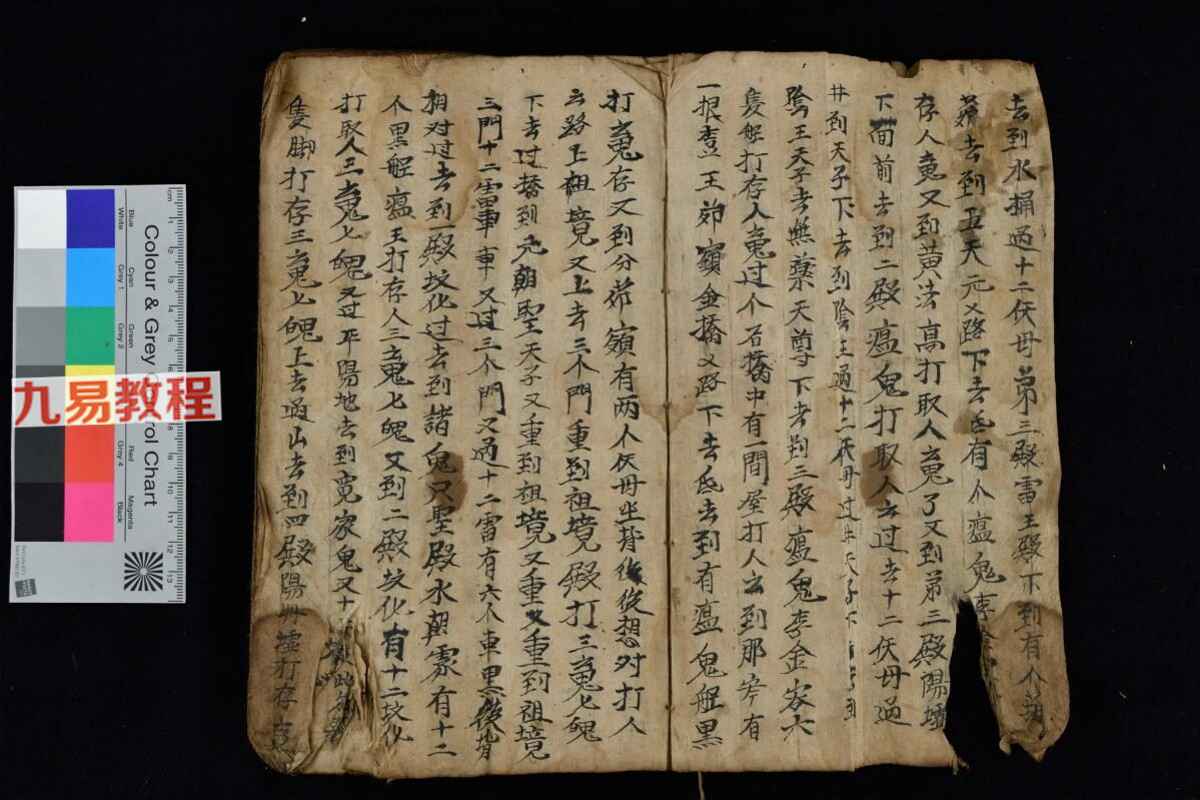 去到水捐過十二伏毋弟三殿雷王殿下到有个
去到五天元义路下去氐有个瘟鬼李
存人䰟又到黄法高打取人䰟了又到弟三殿陽壇
下面前去到二殿瘟鬼打取人去过去十二伏毋過
井到天子下去到陰王過十二伏毋过井天子下
陰王天子考無藥天尊下考到三殿瘟鬼李金容六
隻船打存人䰟过个石橋中有一間屋打人去到那岸有
一根查王茆嶺金橋义路下去氐去到有瘟鬼船黑
打䰟存又到分茆嶺有两个伏毋坐背後後想对打人
去路上祖境又上去三个門重到祖境殿打三䰟七魄
下去过橋到元朝聖天子又重到祖境又重又重到祖境
三門十二雷車車又过三个門又過十二雷有六个車黑後背
相对过去到一殿坟化过去到諸鬼只聖殿水朝雾有十二
个黑船瘟王打存人三䰟七魄又到二殿坟化有十二坟化
打取人三䰟七魄又过平陽地去到寛家鬼又十
隻脚打存三䰟七魄上去過山去到四殿陽州壇打存
九易教程
Colour & Grey Control Chart
Blue
Cyan
Red
Magenta
White
Grey 1
Grey 2
Grey 4
Black